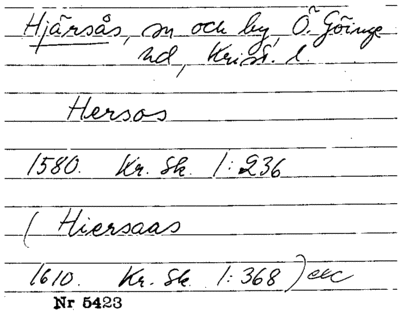 Hjärsås, sn och by, Ö. Göinge
hd, Krist. l.
Hersos
1580. Kr. Sk. 1:236
( Hiersaas
1610. Kr. Sk. 1:368 ) etc
Nr 5423